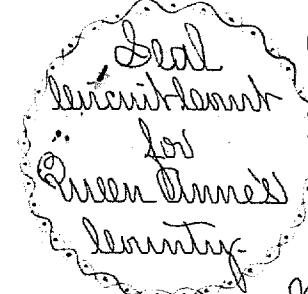 Seal
Circuit Court
for
Queen Anne's
County